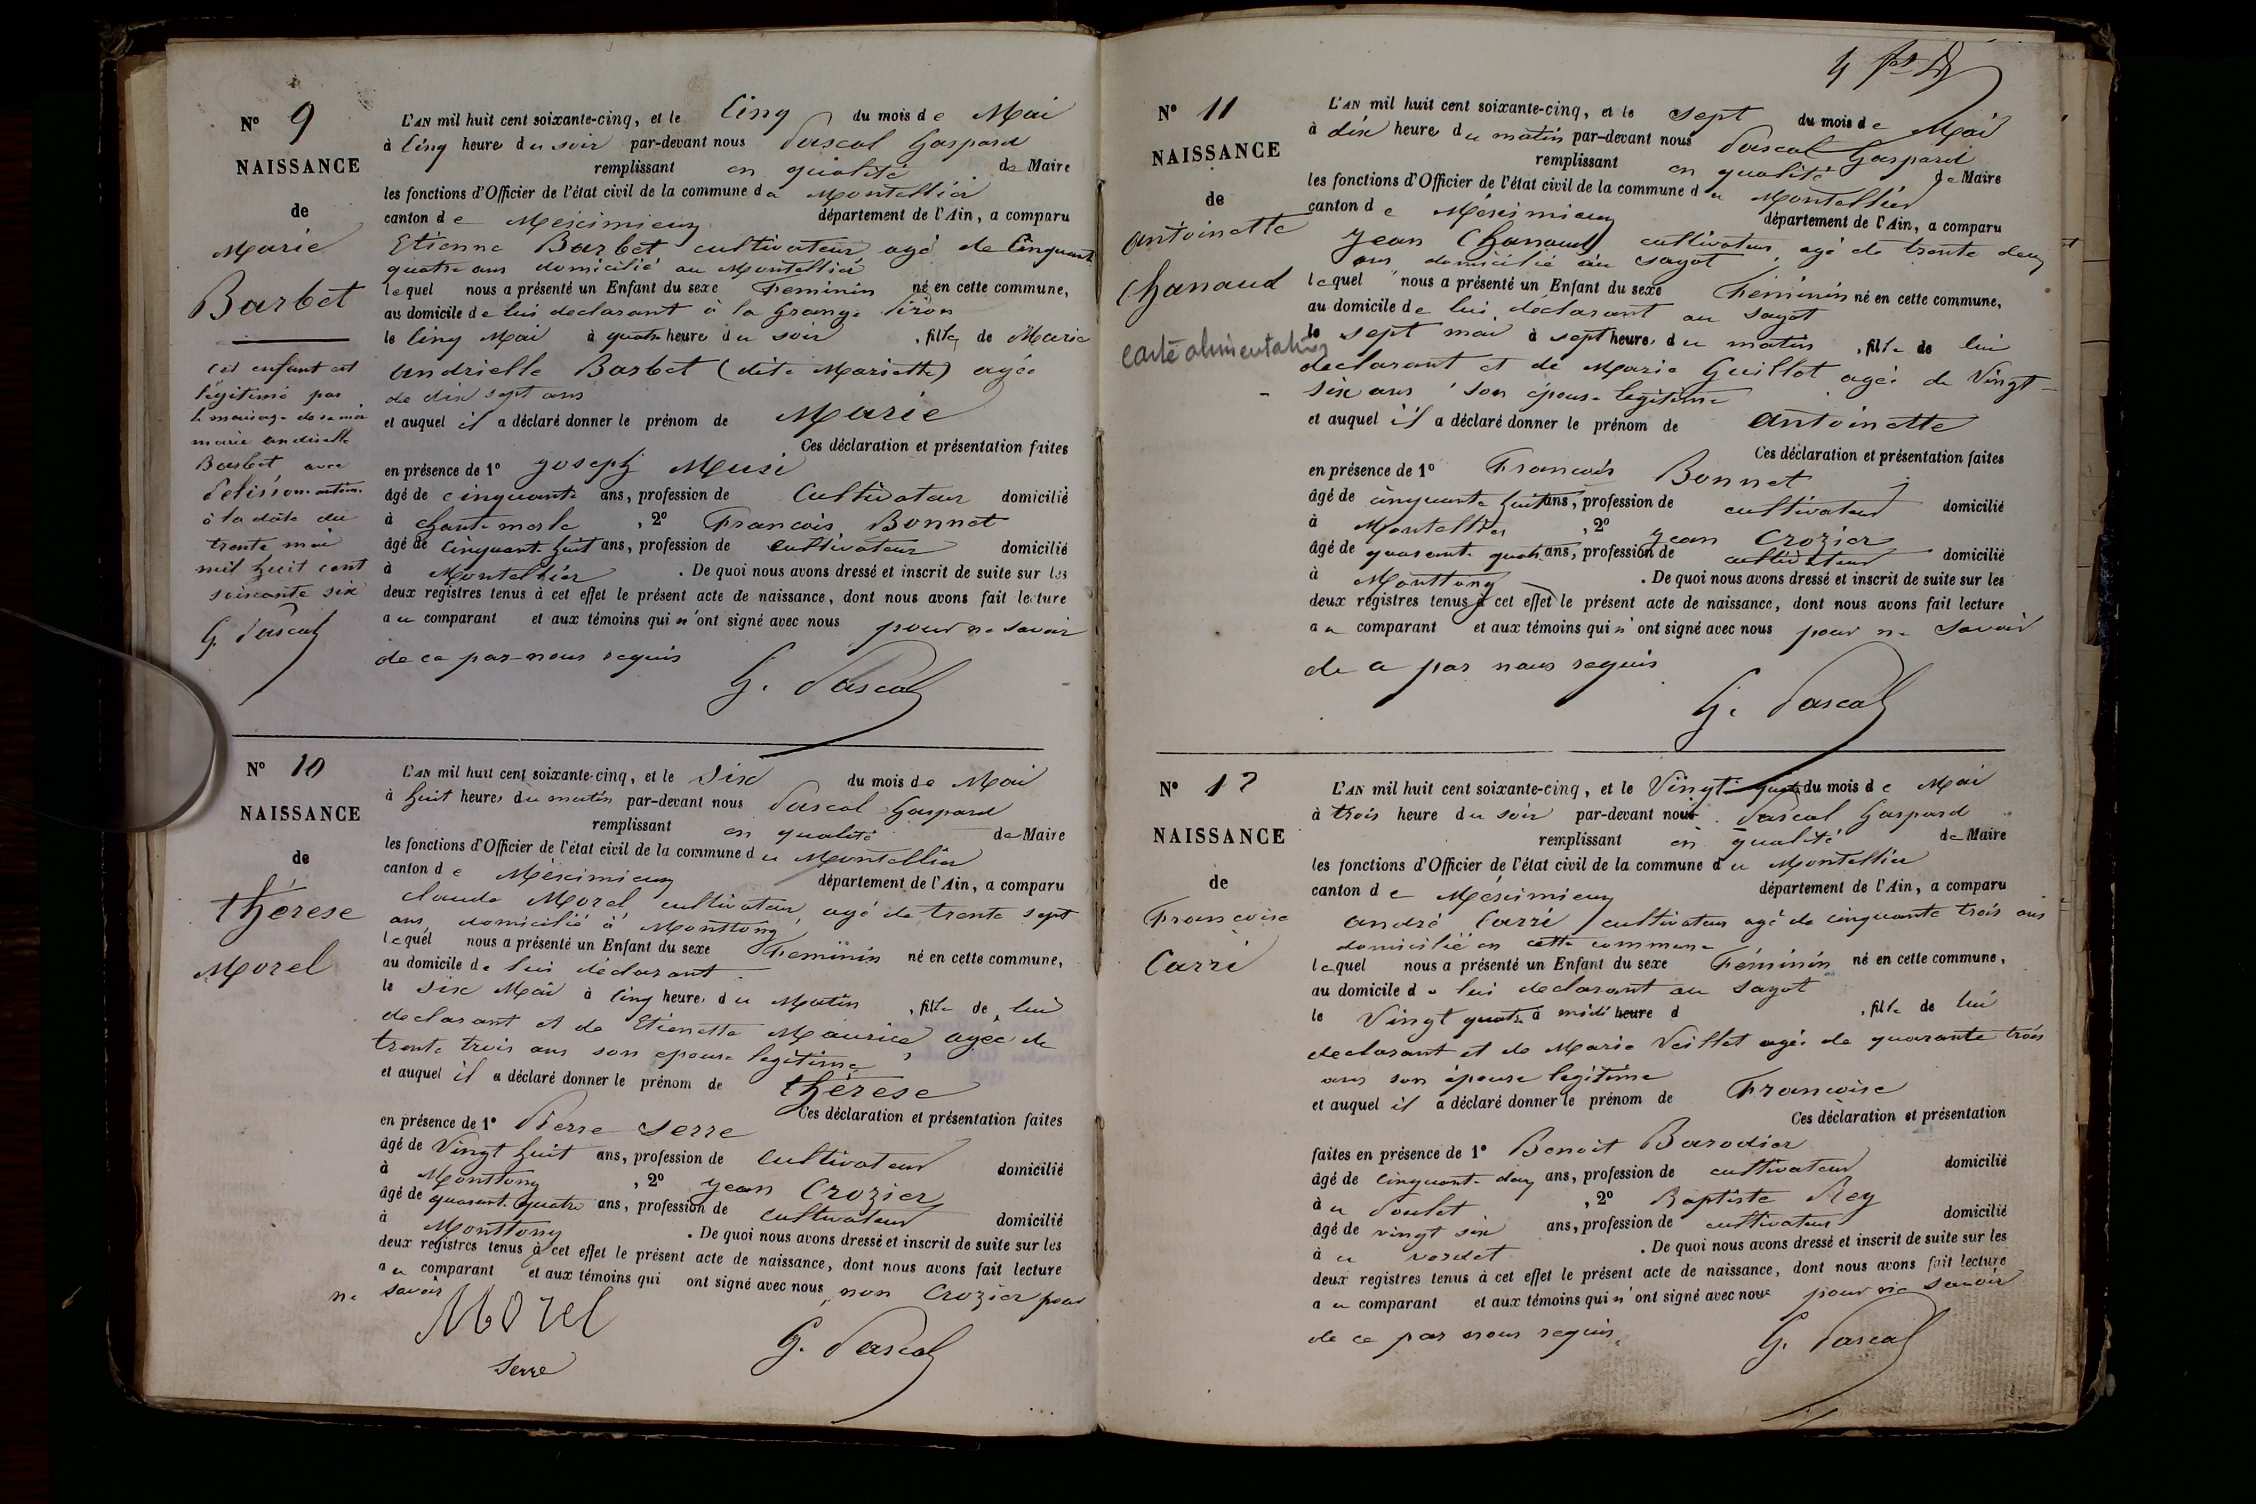 N° 9
NAISSANCE
de
Marie
Barbet
Cet enfant est
légitimé par
le mariage de sa mère
marie andrielle
Barbet avec
à la date du
trente mai
mil huit cent
soixante six
G. Pascal
L'AN mil huit cent soixante-cinq, et le Cinq du mois de Mai
à Cinq heure du soir par-devant nous Pascal Gaspard
remplissant en qualité de Maire
les fonctions d'Officier de l'état civil de la commune du Montellier
canton de Meximieux département de l'Ain, a comparu
Etienne Barbet cultivateur agé de Cinquante
quatre ans domicilié au Montellier
lequel nous a présenté un Enfant du sexe Feminin né en cette commune,
au domicile de lui declarant à la Grange
le Cinq Mai à quatre heure du soir , fille de Marie
andrielle Barbet (dite Mariette) agée
de dix sept ans
et auquel il a déclaré donner le prénom de Marie
Ces déclaration et présentation faites
en présence de 1° Joseph
âgé de cinquante ans, profession de Cultivateur domicilié
à Chantemerle , 2° Francois Bonnet
âgé de Cinquante huit ans, profession de cultivateur domicilié
à Montellier . De quoi nous avons dressé et inscrit de suite sur les
deux registres tenus à cet effet le présent acte de naissance, dont nous avons fait lecture
au comparant et aux témoins qui n'ont signé avec nous pour ne savoir
de ce par nous requis
G. Pascal
N° 10
NAISSANCE
de
thérèse
Morel
L'AN mil huit cent soixante-cinq, et le Six du mois de Mai
à huit heures du matin par-devant nous Pascal Gaspard
remplissant en qualité de Maire
les fonctions d'Officier de l'état civil de la commune du Montellier
canton de Méximieux département de l'Ain, a comparu
Claude Morel cultivateur, agé de trente sept
ans, domicilié à Monttony
lequel nous a présenté un Enfant du sexe Feminin né en cette commune,
au domicile de lui déclarant
le Six Mai à Cinq heure du Matin , fille de lui
declarant et de Etienette Maurice, agée de
trente trois ans son epouse legitime
et auquel il a déclaré donner le prénom de thérèse
Ces déclaration et présentation faites
en présence de 1° Pierre Serre
âgé de Vingt huit ans, profession de Cultivateur domicilié
à Monttony , 2° Jean Crozier
âgé de quarante quatre ans, profession de Cultivateur domicilié
à Monttony . De quoi nous avons dressé et inscrit de suite sur les
deux registres tenus à cet effet le présent acte de naissance, dont nous avons fait lecture
au comparant et aux témoins qui ont signé avec nous, non Crozier pour
ne savoir
Morel
Serre
G. Pascal
N° 11
NAISSANCE
de
antoinette
Chanaud
Carte alimentation
L'AN mil huit cent soixante-cinq, et le Sept du mois de Mai
à dix heures du matin par-devant nous Pascal Gaspard
remplissant en qualité de Maire
les fonctions d'Officier de l'état civil de la commune du Montellier
canton de Méximieux département de l'Ain, a comparu
Jean Chanaud cultivateur, agé de trente deux
ans domicilié au Sayot
lequel nous a présenté un Enfant du sexe Féminin né en cette commune,
au domicile de lui déclarant au Sayot
le sept mai à sept heures du matin , fille de lui
declarant et de Marie Guillot agée de Vingt-
six ans son épouse legitime
et auquel il a déclaré donner le prénom de antoinette
Ces déclaration et présentation faites
en présence de 1° Francois Bonnet
âgé de cinquante huit ans, profession de cultivateur domicilié
à Montellier , 2° Jean Crozier
âgé de quarante quatre ans, profession de cultivateur domicilié
à Monttony . De quoi nous avons dressé et inscrit de suite sur les
deux registres tenus à cet effet le présent acte de naissance, dont nous avons fait lecture
au comparant et aux témoins qui n'ont signé avec nous pour ne Savoir
de ce par nous requis
G. Pascal
N° 12
NAISSANCE
de
Francoise
Carré
L'AN mil huit cent soixante-cinq, et le Vingt quatre du mois de Mai
à trois heure du soir par-devant nous Pascal Gaspard
remplissant en qualité de Maire
les fonctions d'Officier de l'état civil de la commune du Montellier
canton de Méximieux département de l'Ain, a comparu
andré Carré cultivateur agé de cinquante trois ans
domicilié en cette commune
lequel nous a présenté un Enfant du sexe Féminin né en cette commune,
au domicile de lui declarant au Sayot
le Vingt quatre à midi heure d , fille de lui
declarant et de Marie Veillet agée de quarante trois
ans son épouse legitime
et auquel il a déclaré donner le prénom de Francoise
Ces déclaration et présentation
faites en présence de 1° Benoit Barodier
âgé de cinquante deux ans, profession de cultivateur domicilié
au Poulet , 2° Baptiste Rey
âgé de vingt six ans, profession de cultivateur domicilié
au verdet . De quoi nous avons dressé et inscrit de suite sur les
deux registres tenus à cet effet le présent acte de naissance, dont nous avons fait lecture
au comparant et aux témoins qui n'ont signé avec nous pour ne savoir
de ce par nous requis.
G. Pascal